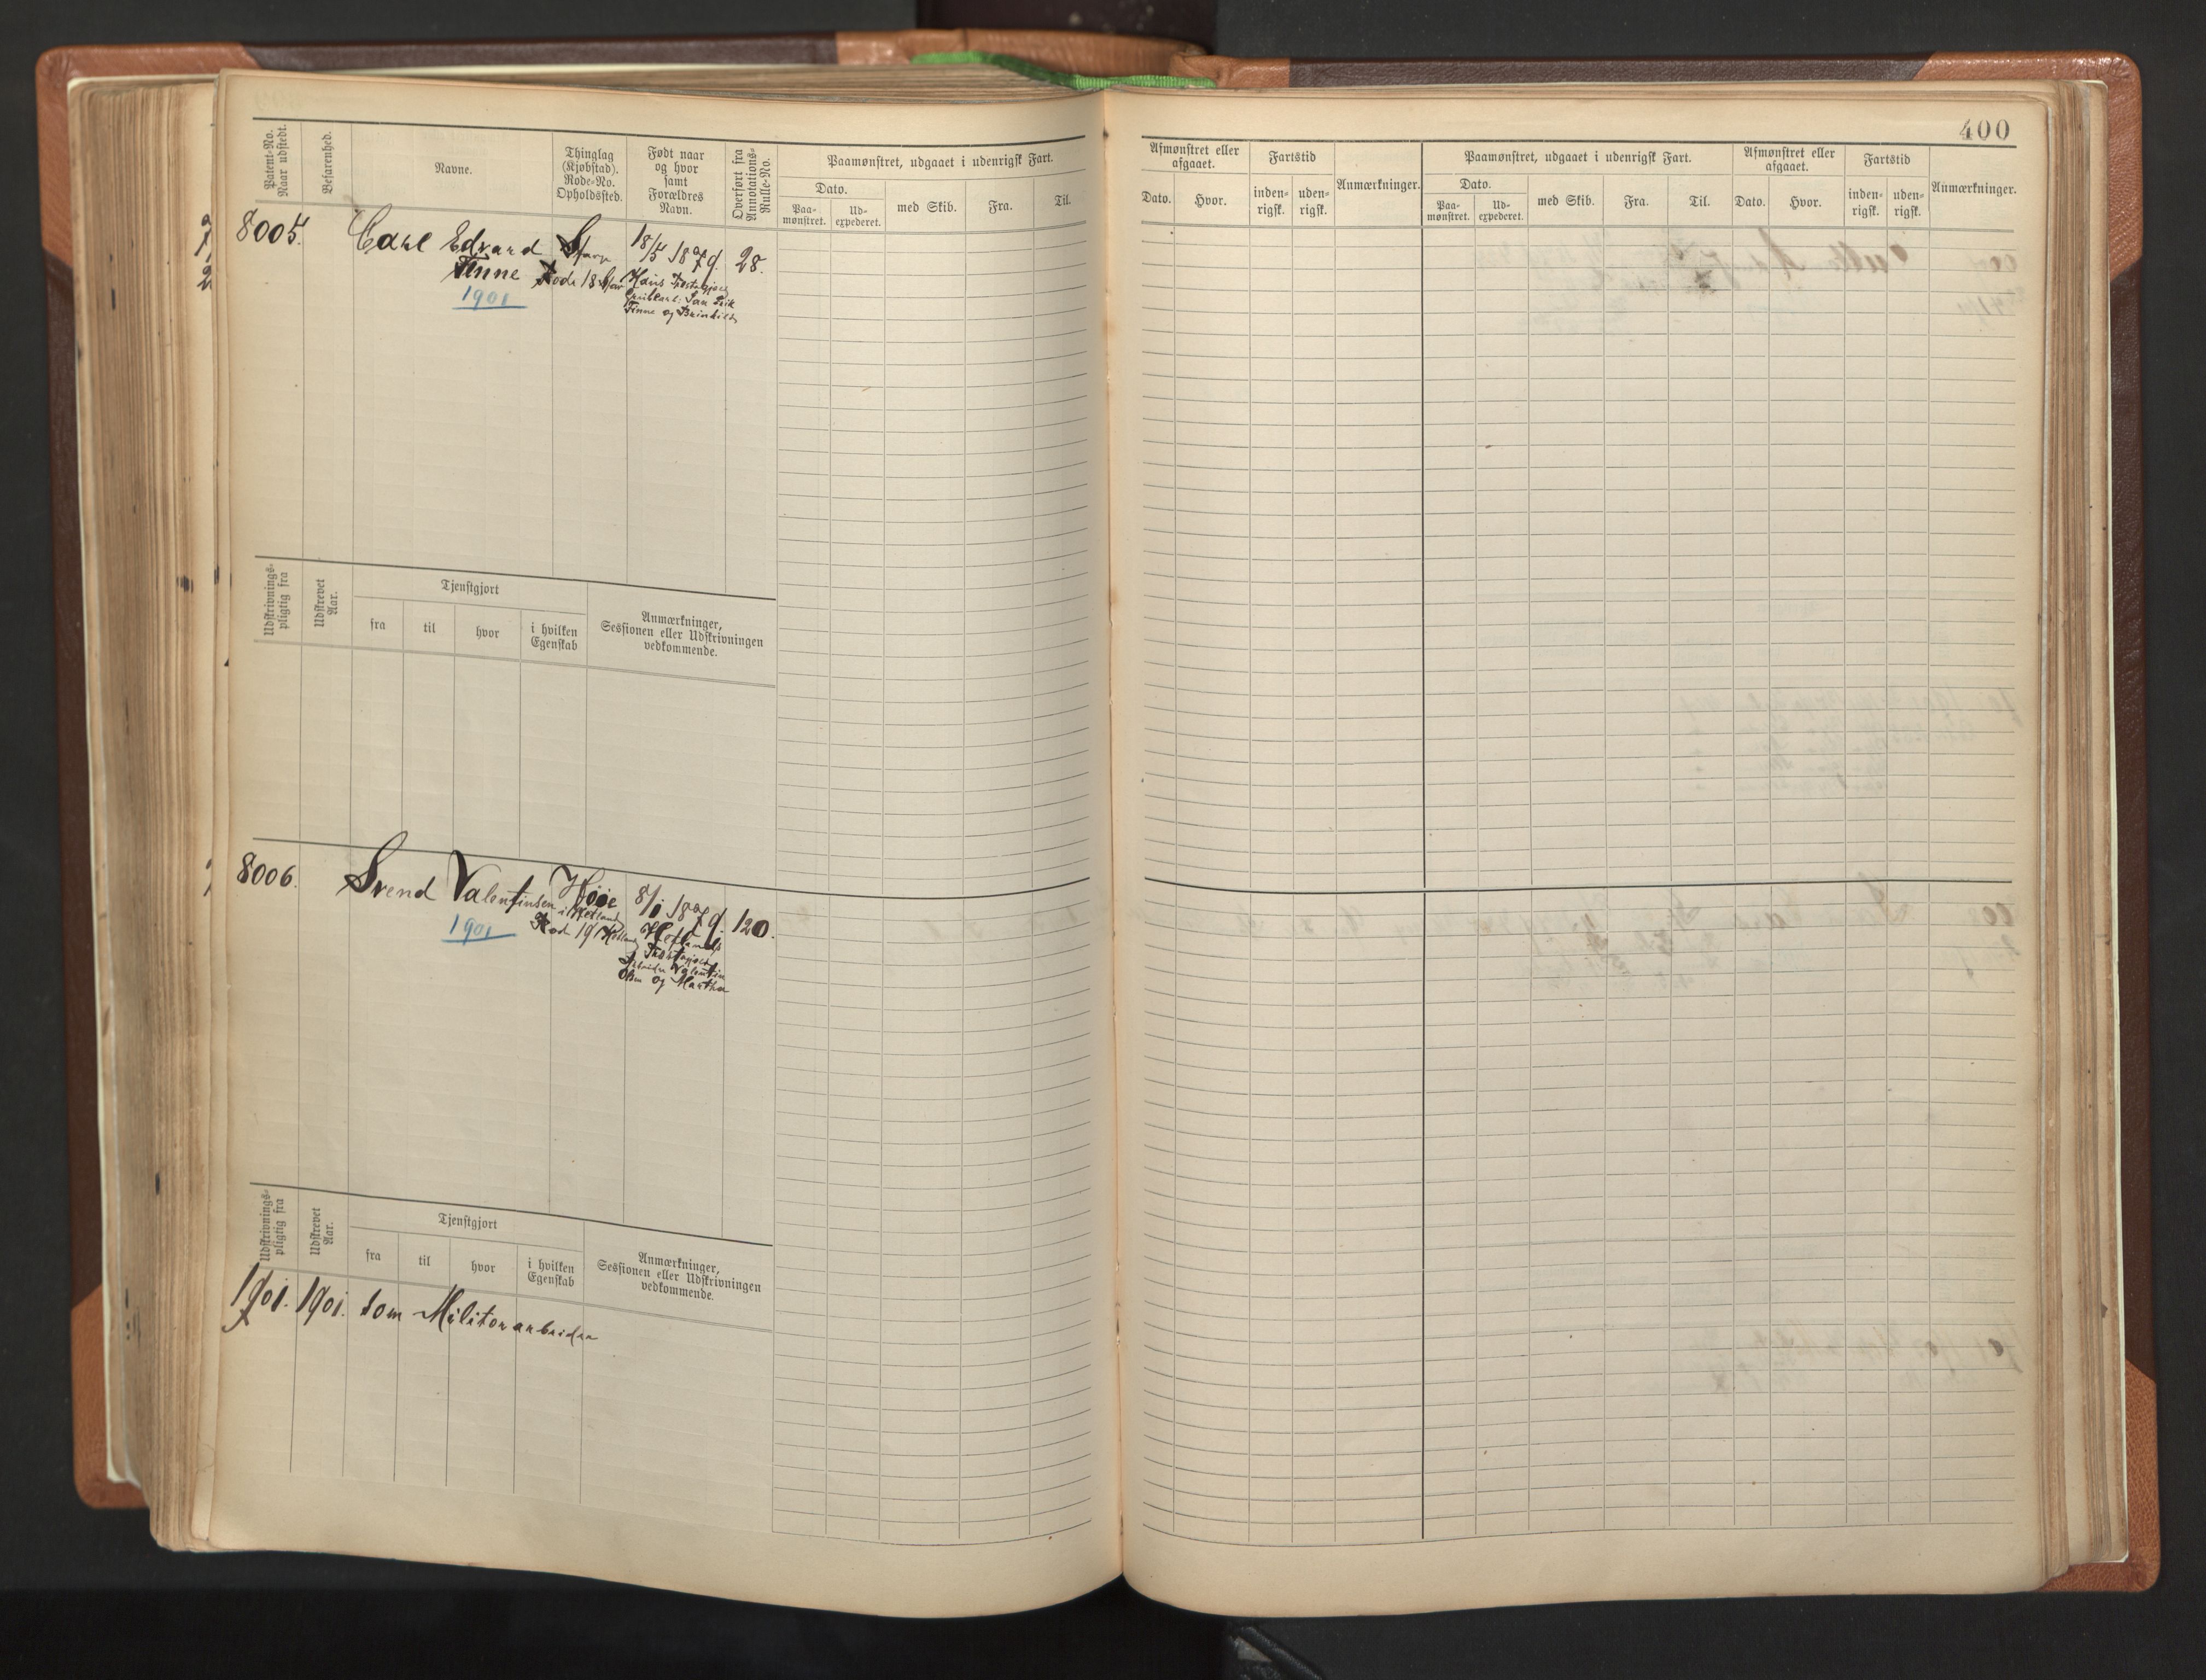 400
Patent-No. Naar udstedt.
Befarenhed.
Navne.
Thinglag (Kjøbstad). Rode-No. Opholdssted.
Født naar og hvor samt Forældres Navn.
Overført fra Annotations-Rulle-No.
Paamønstret, udgaaet i udenrigsk Fart.
Dato.
Paa-mønstret.
Ud-expederet.
med Skib.
Fra.
Til.
Afmønstret eller afgaaet.
Dato.
Hvor.
Fartstid
inden-rigsk.
uden-rigsk.
Anmærkninger.
Paamønstret, udgaaet i udenrigsk Fart.
Dato.
Paa-mønstret.
Ud-expederet.
med Skib.
Fra.
Til.
Afmønstret eller afgaaet.
Dato.
Hvor.
Fartstid
inden-rigsk.
uden-rigsk.
Anmærkninger.
8005. Carl Edvard 18/5 1879. 28.
Finne Rode 18 Hans
Finne og
1901
Udskrivnings-pligtig fra
Udskrevet Aar.
Tjenstgjort
fra
til
hvor
i hvilken Egenskab
Anmærkninger, Sessionen eller Udskrivningen vedkommende.
8006. Svend Valentinsen Høie 8/1 1879. 120.
i Hetland
1901 Rode 19
Valentin
Olsen og Martha
Udskrivnings-pligtig fra
Udskrevet Aar.
Tjenstgjort
fra
til
hvor
i hvilken Egenskab
Anmærkninger, Sessionen eller Udskrivningen vedkommende.
1901. 1901. som Militærarbeider